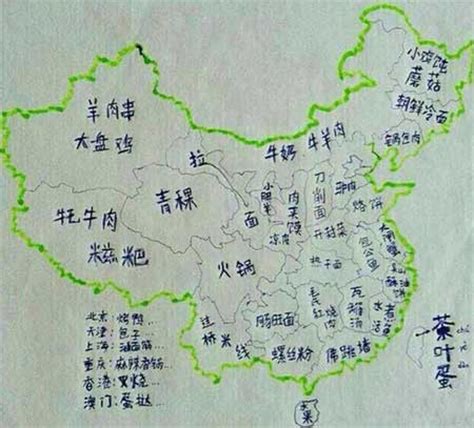 小炖
蘑菇
朝鲜冷面
锅包肉
羊肉串
大盘鸡
拉
面
牛奶 牛羊肉
青稞
牦牛肉
糍粑
小肥羊
肉夹馍
凉皮
刀削面
烧饼
开封菜
热干面
包公鱼
火锅
毛氏红烧肉
瓦罐汤
过桥米线
肠旺面
螺丝粉
佛跳墙
水果
茶叶蛋
北京:烤鸭...
天津:包子...
上海:
重庆:麻辣香锅...
香港:叉烧...
澳门:蛋挞...